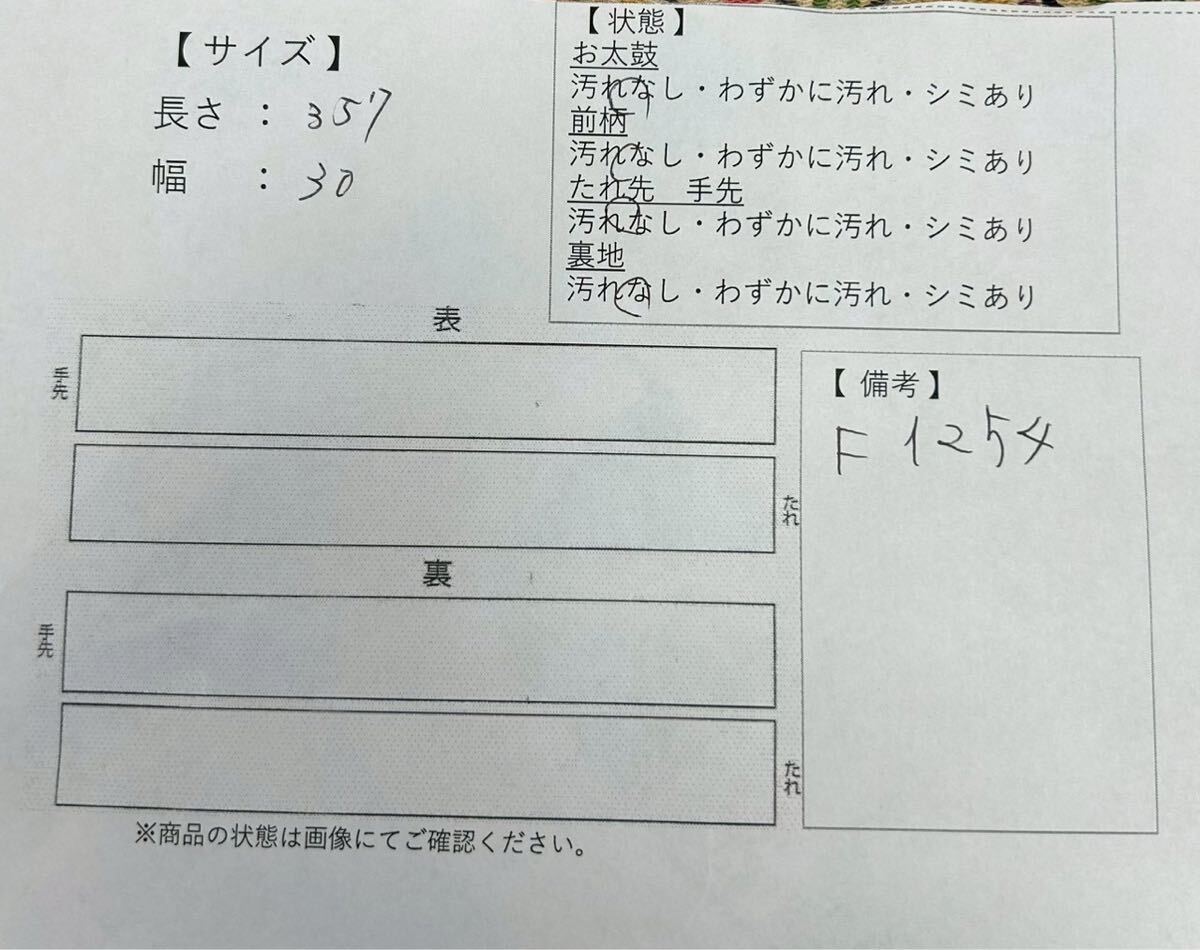 【 サイズ 】
長さ : 357
幅 : 30
【 状態 】
お太鼓
汚れなし・わずかに汚れ・シミあり
前柄
汚れなし・わずかに汚れ・シミあり
たれ先 手先
汚れなし・わずかに汚れ・シミあり
裏地
汚れなし・わずかに汚れ・シミあり
表
手先
たれ
裏
手先
たれ
【 備考 】
F 1254
※商品の状態は画像にてご確認ください。